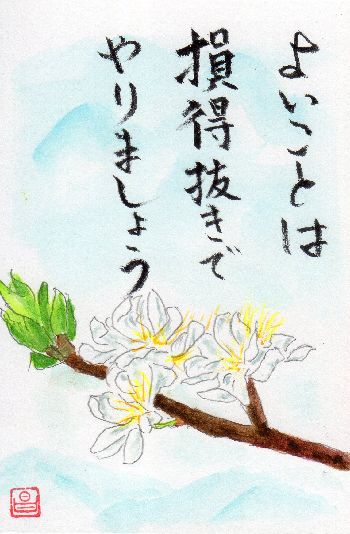 よいことは
損得抜きで
やりましょう